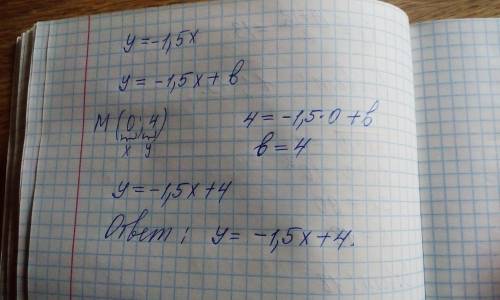 y=-1,5x
y=-1,5x+b
M(0;4) 4=-1,5·0+b
x y b=4
y=-1,5x+4
Ответ: y=-1,5x+4.